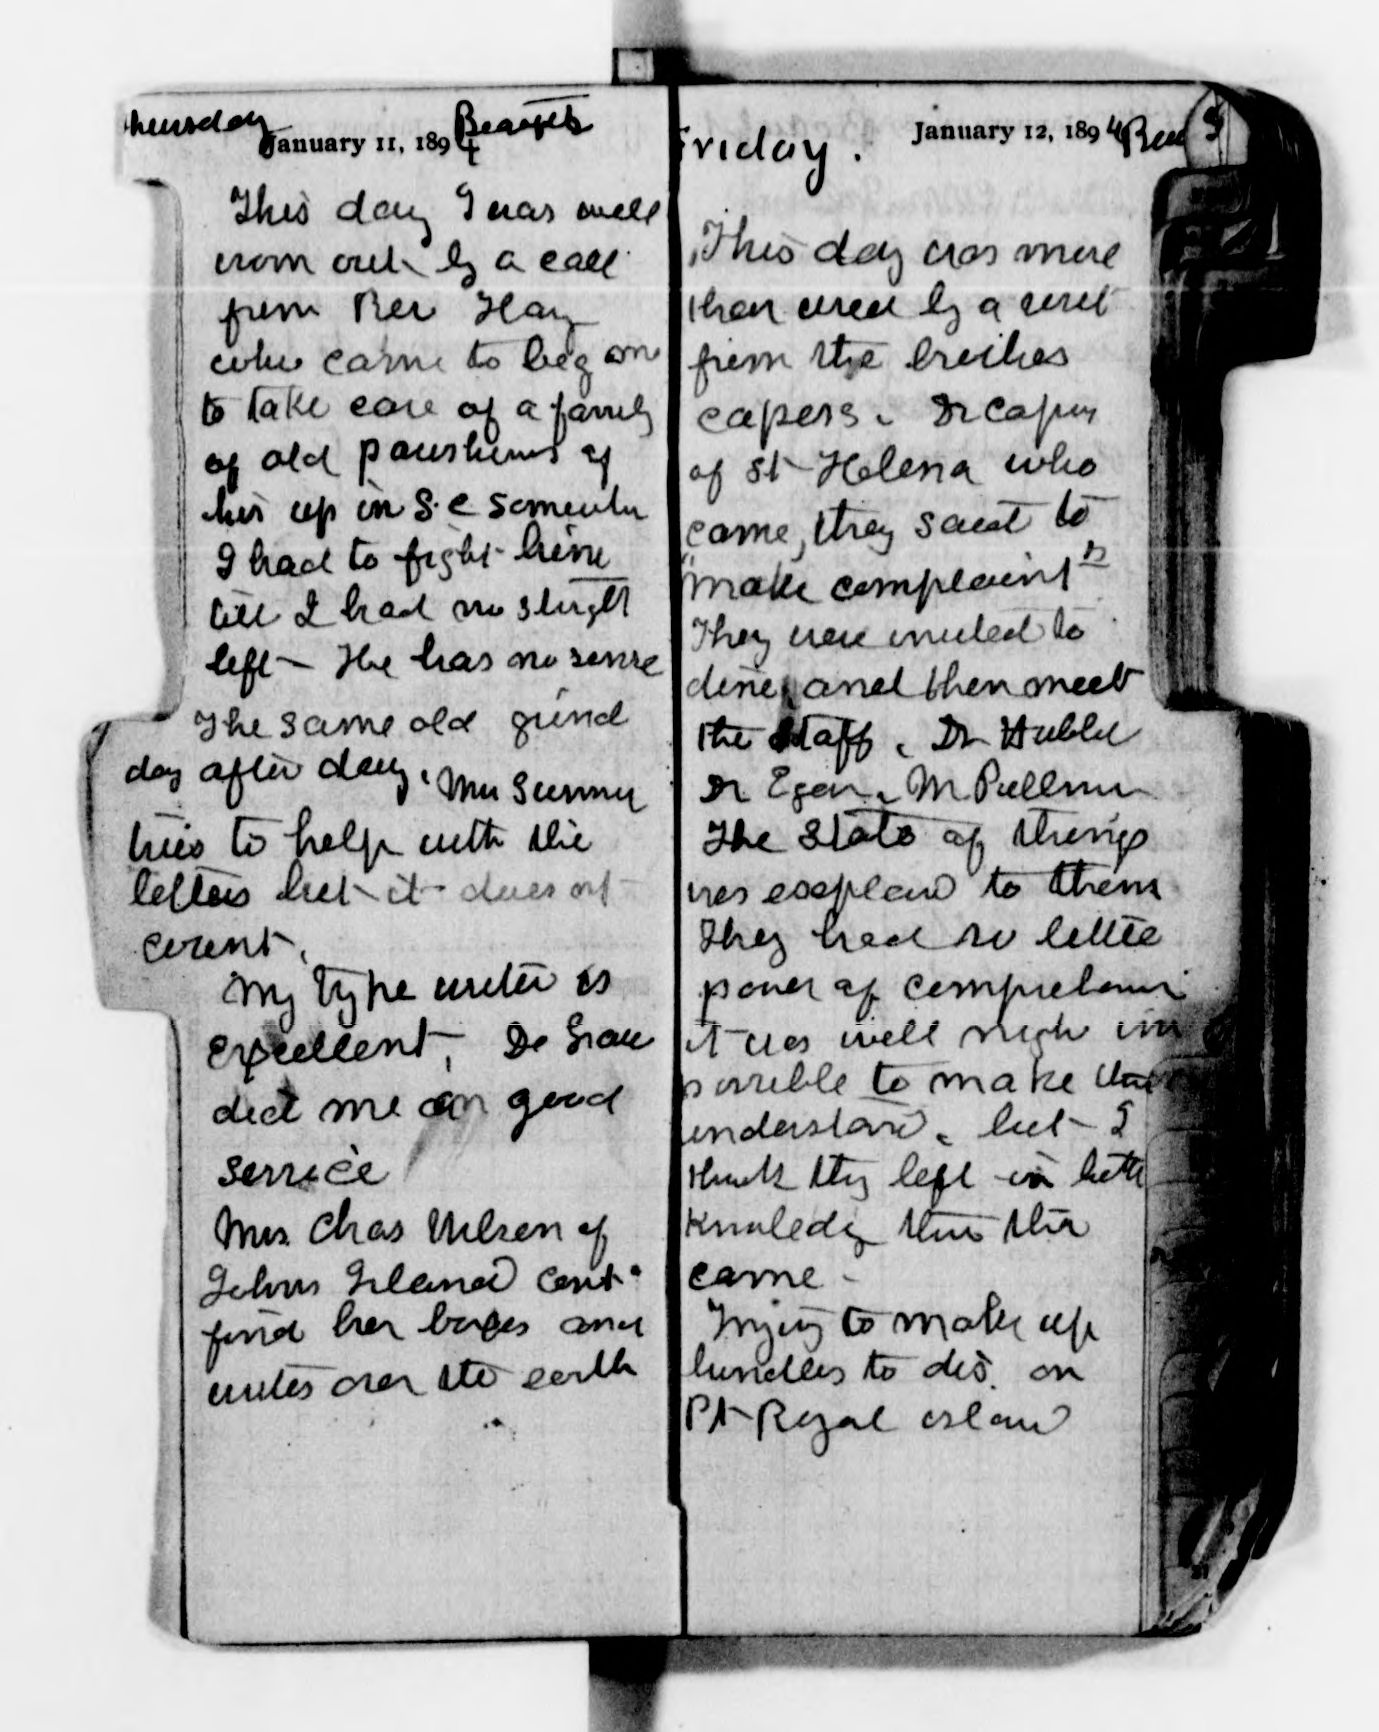 Thursday
January 11, 1894
Beaufort
This day I was well
worn out by a call
from Rev Hay
who came to beg me
to take care of a family
of old parishiners of
his up in S.C somewhere
I had to fight him
till I had no strength
left - He has no sense
The same old grind
day after day. Mrs Sumner
tries to help with the
letters but it does not
count.
My type writer is
excellent, De Grau
did me a good
service
Mrs. Chas Wilson of
Johns Island cont
find her boxes and
writes over the earth
Friday.
January 12, 1894 Beau
This day was more
than used by a visit
from the
capers. Dr Capers
of St Helena who
came, they said to
"make complaint"
They were invited to
dine and then meet
the Staff. Dr Hubbel
Dr Egan. Mr Pullman
The State of things
was explaind to them
They had so little
power of comprehension
it was well nigh im
possible to make them
understand. but I
think they left in bette
Knowledg than the
came -
Trying to make up
bundles to dis. on
Pt Royal island